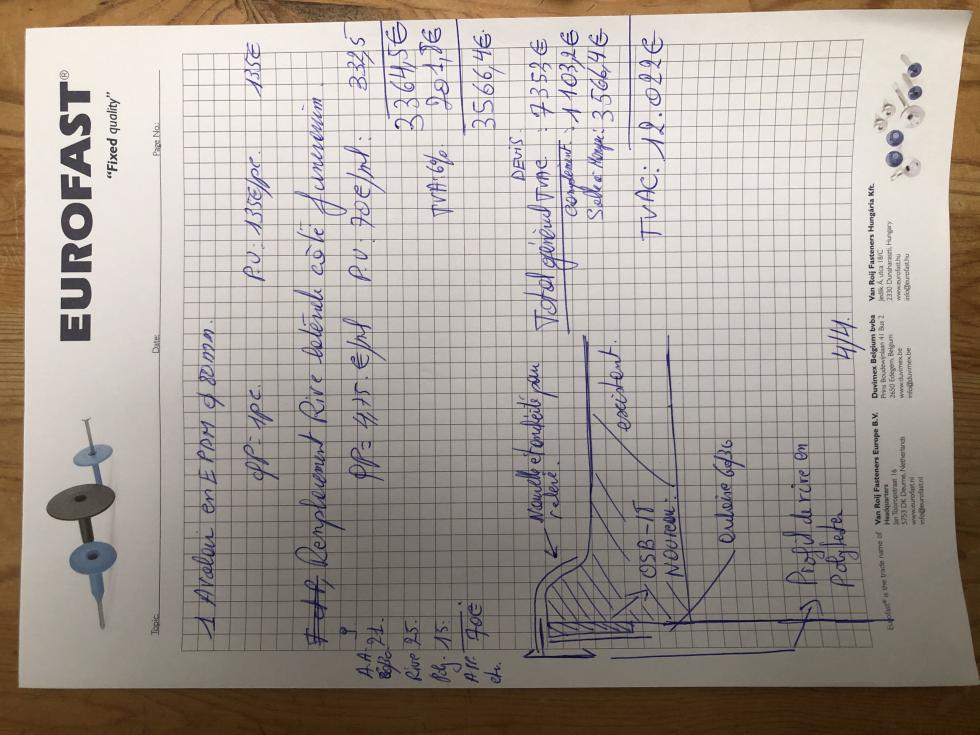 EUROFAST®
"Fixed quality"
Topic:
Date:
Page No.:
1 Avaloir en EPDM Ø 80mm.
QP= 1pc. P.U: 135€/pc. 135€
Remplacement Rive latérale côté funérarium.
QP= 4,75 €/ml P.U: 70€/ml: 332,5
3364,5€
TVA: 6%
201,8€
3566,4€
A.A
21.
Rive 25.
Poly. 15.
70€
etc.
Nouvelle étanchéité
relevé.
DEVIS
Total général TVAC : 7352€
Complément : 1103,2€
3566,4€
TVAC: 12.022€
existant.
OSB-IT
Nouveau:
Profil de rive en
Polyester
4/4.
Eurofast® is the trade name of
Van Roij Fasteners Europe B.V.
Headquarters
Jan Tooropstraat 16
5753 DK Deurne, Netherlands
www.eurofast.nl
info@eurofast.nl
Duvimex Belgium bvba
Prins Boudewijnlaan 41 Bus 2
2650 Edegem, Belgium
www.duvimex.be
info@duvimex.be
Van Roij Fasteners Hungária Kft.
Jedlik Á. utca 18/C
2330 Dunaharaszti, Hungary
www.eurofast.hu
info@eurofast.hu